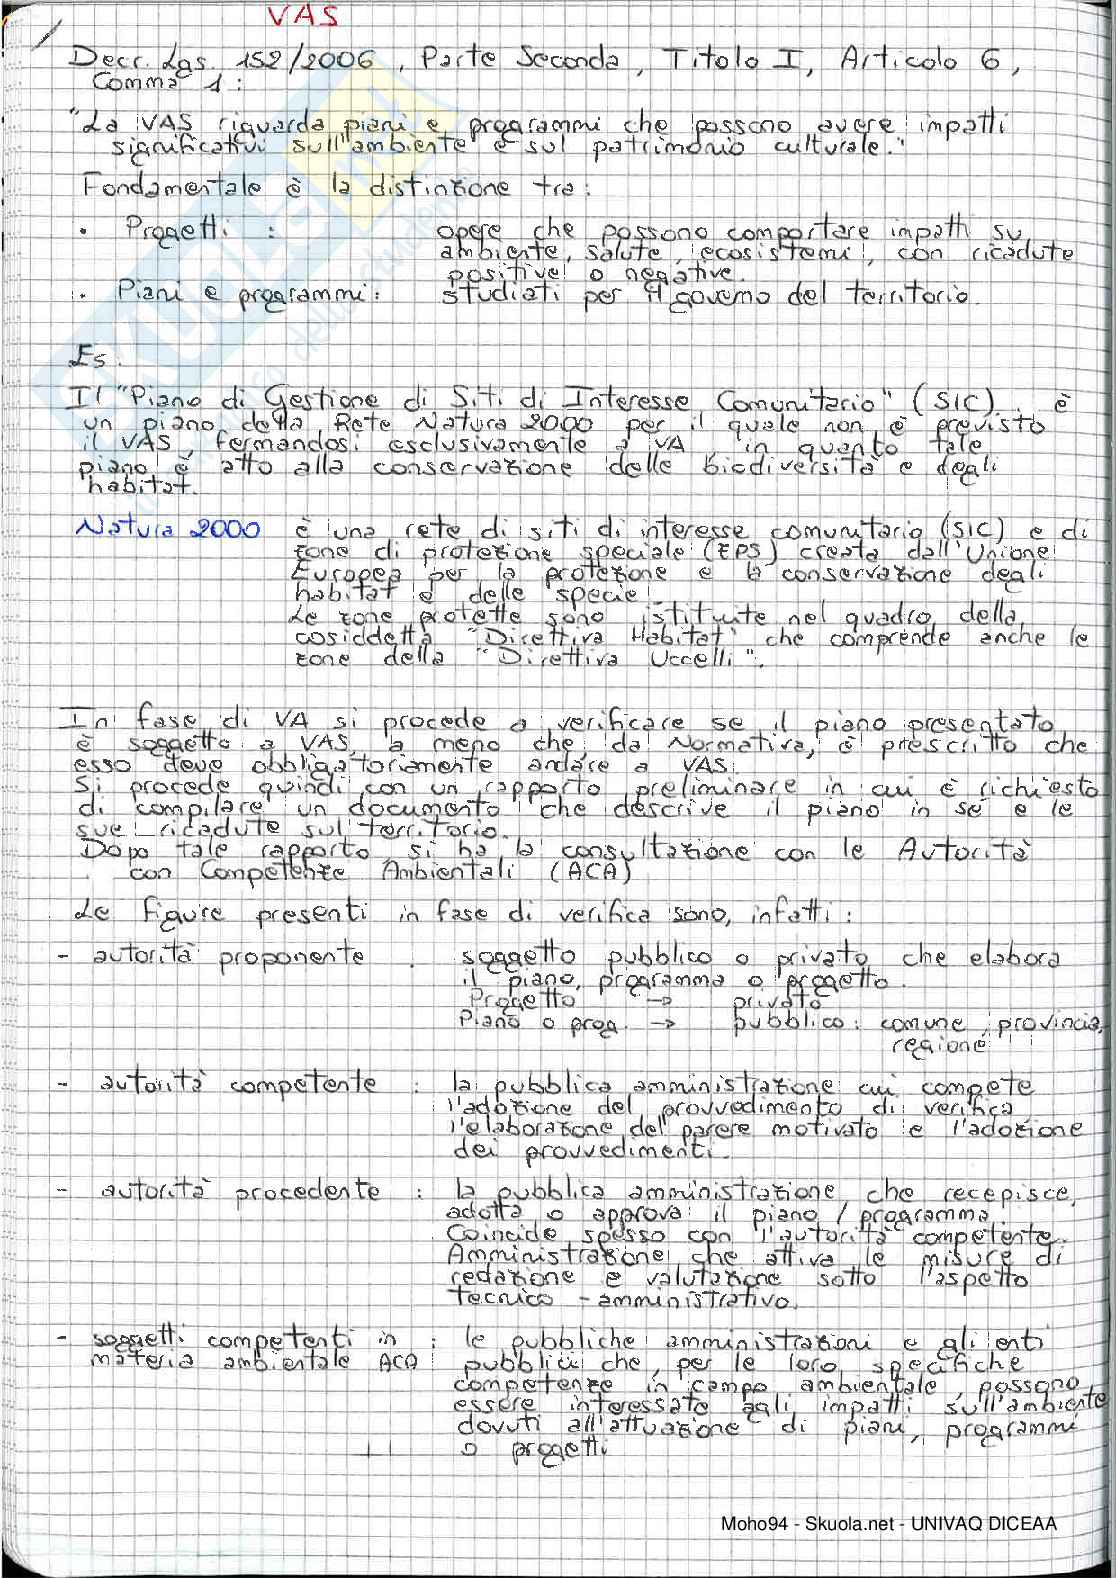 VAS
Decr. Lgs. 152/2006, Parte Seconda, Titolo I, Articolo 6,
Comma 1:
"La VAS riguarda piani e programmi che possono avere impatti
significativi sull'ambiente e sul patrimonio culturale."
Fondamentale è la distinzione tra:
• Progetti : opere che possono comportare impatti su
ambiente, salute, ecosistemi, con ricadute
positive o negative.
• Piani e programmi: studiati per il governo del territorio.
Es.
Il "Piano di Gestione di Siti di Interesse Comunitario" (SIC), è
un piano della Rete Natura 2000 per il quale non è previsto
il VAS, fermandosi esclusivamente a VA in quanto tale
piano è atto alla conservazione delle biodiversità e degli
habitat.
Natura 2000 è una rete di siti di interesse comunitario (SIC) e di
zone di protezione speciale (ZPS) creata dall'Unione
Europea per la protezione e la conservazione degli
habitat e delle specie.
Le zone protette sono istituite nel quadro della
cosiddetta "Direttiva Habitat" che comprende anche le
zone della "Direttiva Uccelli".
In fase di VA si procede a verificare se il piano presentato
è soggetto a VAS, a meno che, da Normativa, è prescritto che
esso deve obbligatoriamente andare a VAS.
Si procede quindi con un rapporto preliminare in cui è richiesto
di compilare un documento che descrive il piano in sé e le
sue ricadute sul territorio.
Dopo tale rapporto si ha la consultazione con le Autorità
con Competenze Ambientali (ACA)
Le figure presenti in fase di verifica sono, infatti:
- autorità proponente : soggetto pubblico o privato che elabora
il piano, programma o progetto.
Progetto → privato
Piano o prog. → pubblico: comune, provincia,
regione
- autorità competente : la pubblica amministrazione cui compete
l'adozione del provvedimento di verifica,
l'elaborazione del parere motivato e l'adozione
dei provvedimenti.
- autorità procedente : la pubblica amministrazione che recepisce,
adotta o approva il piano / programma.
Coincide spesso con l'autorità competente.
Amministrazione che attiva le misure di
redazione e valutazione sotto l'aspetto
tecnico-amministrativo.
- soggetti competenti in : le pubbliche amministrazioni e gli enti
materia ambientale ACA pubblici che, per le loro specifiche
competenze in campo ambientale, possono
essere interessate agli impatti sull'ambiente
dovuti all'attuazione di piani, programmi
o progetti
Moho94 - Skuola.net - UNIVAQ DICEAA